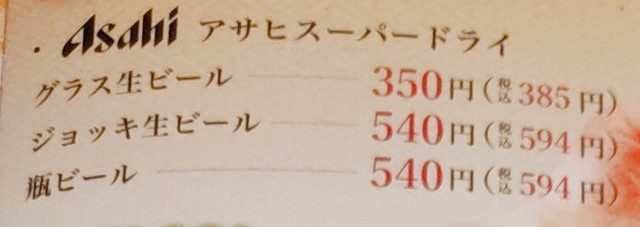 ・Asahi アサヒスーパードライ
グラス生ビール 350円(税込385円)
ジョッキ生ビール 540円(税込594円)
瓶ビール 540円(税込594円)